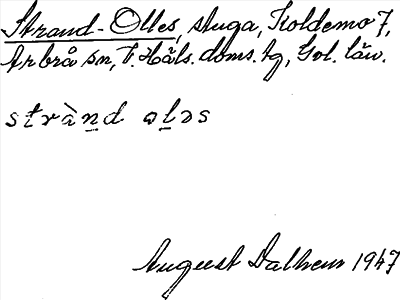 Strand-Olles, stuga, Koldemo 7,
Arbrå sn, V. Häls. doms. tg, Gvl. län.
strànd ɷləs
August Dalheur 1947